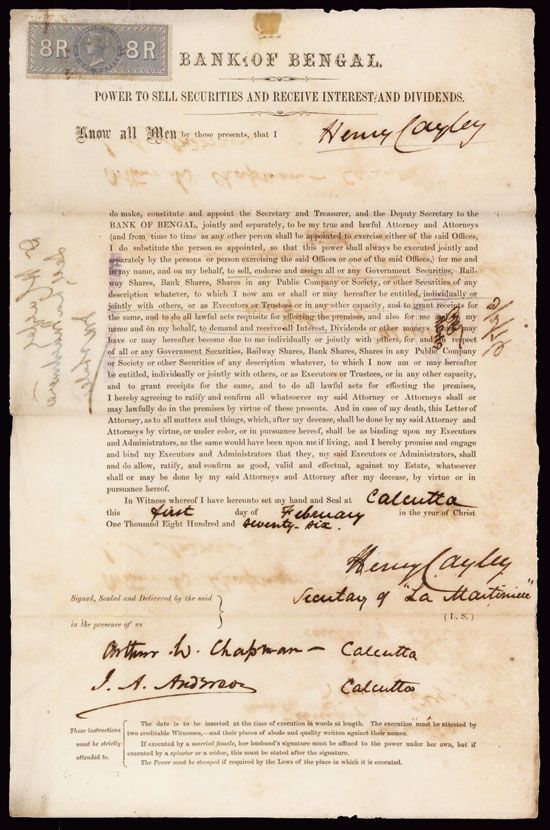 8 R 8 R
BANK OF BENGAL.
POWER TO SELL SECURITIES AND RECEIVE INTEREST AND DIVIDENDS.
Know all Men by these presents, that I Henry Cayley
do make, constitute and appoint the Secretary and Treasurer, and the Deputy Secretary to the
BANK OF BENGAL, jointly and separately, to be my true and lawful Attorney and Attorneys
(and from time to time as any other person shall be appointed to exercise either of the said Offices,
I do substitute the person so appointed, so that this power shall always be executed jointly and
separately by the persons or person exercising the said Offices or one of the said Offices,) for me and
in my name, and on my behalf, to sell, endorse and assign all or any Government Securities, Rail-
way Shares, Bank Shares, Shares in any Public Company or Society, or other Securities of any
description whatever, to which I now am or shall or may hereafter be entitled, individually or
jointly with others, or as Executors or Trustees or in any other capacity, and to grant receipts for
the same, and to do all lawful acts requisite for effecting the premises, and also for me and in my
name and on my behalf, to demand and receive all Interest, Dividends or other moneys I now may
have or may hereafter become due to me individually or jointly with others, for and in respect
of all or any Government Securities, Railway Shares, Bank Shares, Shares in any Public Company
or Society or other Securities of any description whatever, to which I now am or may hereafter
be entitled, individually or jointly with others, or as Executors or Trustees, or in any other capacity,
and to grant receipts for the same, and to do all lawful acts for effecting the premises,
I hereby agreeing to ratify and confirm all whatsoever my said Attorney or Attorneys shall or
may lawfully do in the premises by virtue of these presents. And in case of my death, this Letter of
Attorney, as to all matters and things, which, after my decease, shall be done by my said Attorney and
Attorneys by virtue, or under color, or in pursuance hereof, shall be as binding upon my Executors
and Administrators, as the same would have been upon me if living, and I hereby promise and engage
and bind my Executors and Administrators that they, my said Executors or Administrators, shall
and do allow, ratify, and confirm as good, valid and effectual, against my Estate, whatsoever
shall or may be done by my said Attorneys and Attorney after my decease, by virtue or in
pursuance hereof.
In Witness whereof I have hereunto set my hand and Seal at Calcutta
this first day of February in the year of Christ
One Thousand Eight Hundred and seventy-six.
Henry Cayley
Secretary of "La Martiniere"
Signed, Sealed and Delivered by the said
(L. S.)
in the presence of us
Arthur W. Chapman - Calcutta
J. A. Anderson Calcutta
These instructions must be strictly attended to.
The date is to be inserted at the time of execution in words at length. The execution must be attested by
two creditable Witnesses,—and their places of abode and quality written against their names.
If executed by a married female, her husband's signature must be affixed to the power under her own, but if
executed by a spinster or a widow, this must be stated after the signature.
The Power must be stamped if required by the Laws of the place in which it is executed.